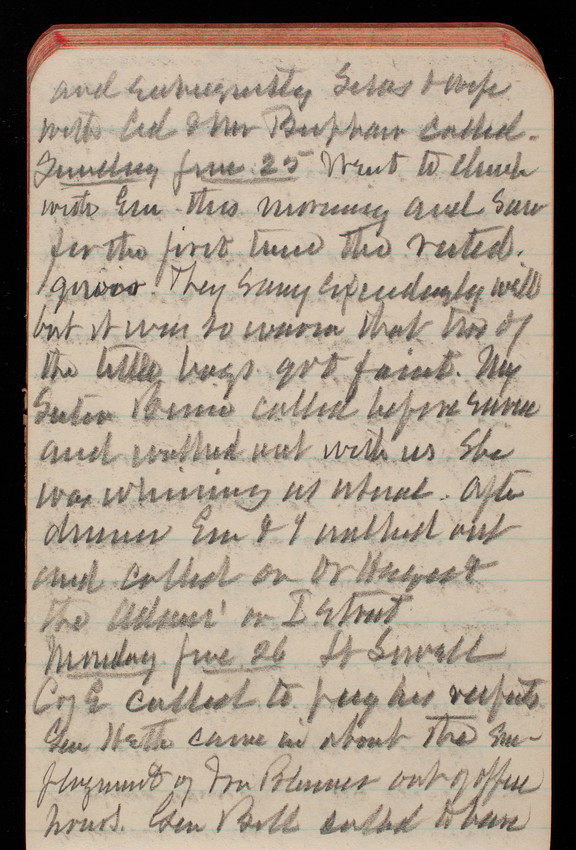 and subsequently Silas & wife
with Col & Mrs called.
Sunday June 25 Went to church
with Em this morning and saw
for the first time the vested
They sang exceedingly well
but it was so warm that two of
the little boys got faint. My
Sister called before service
and walked out with us She
was whining as usual. After
dinner Em & I walked out
and called on Dr &
the on I Street
Monday June 26 Lt Sewall
Cor E called to pay his respects
Gen Heth came in about the em-
ployment of Mr out of office
hours. Gen Bell called to have